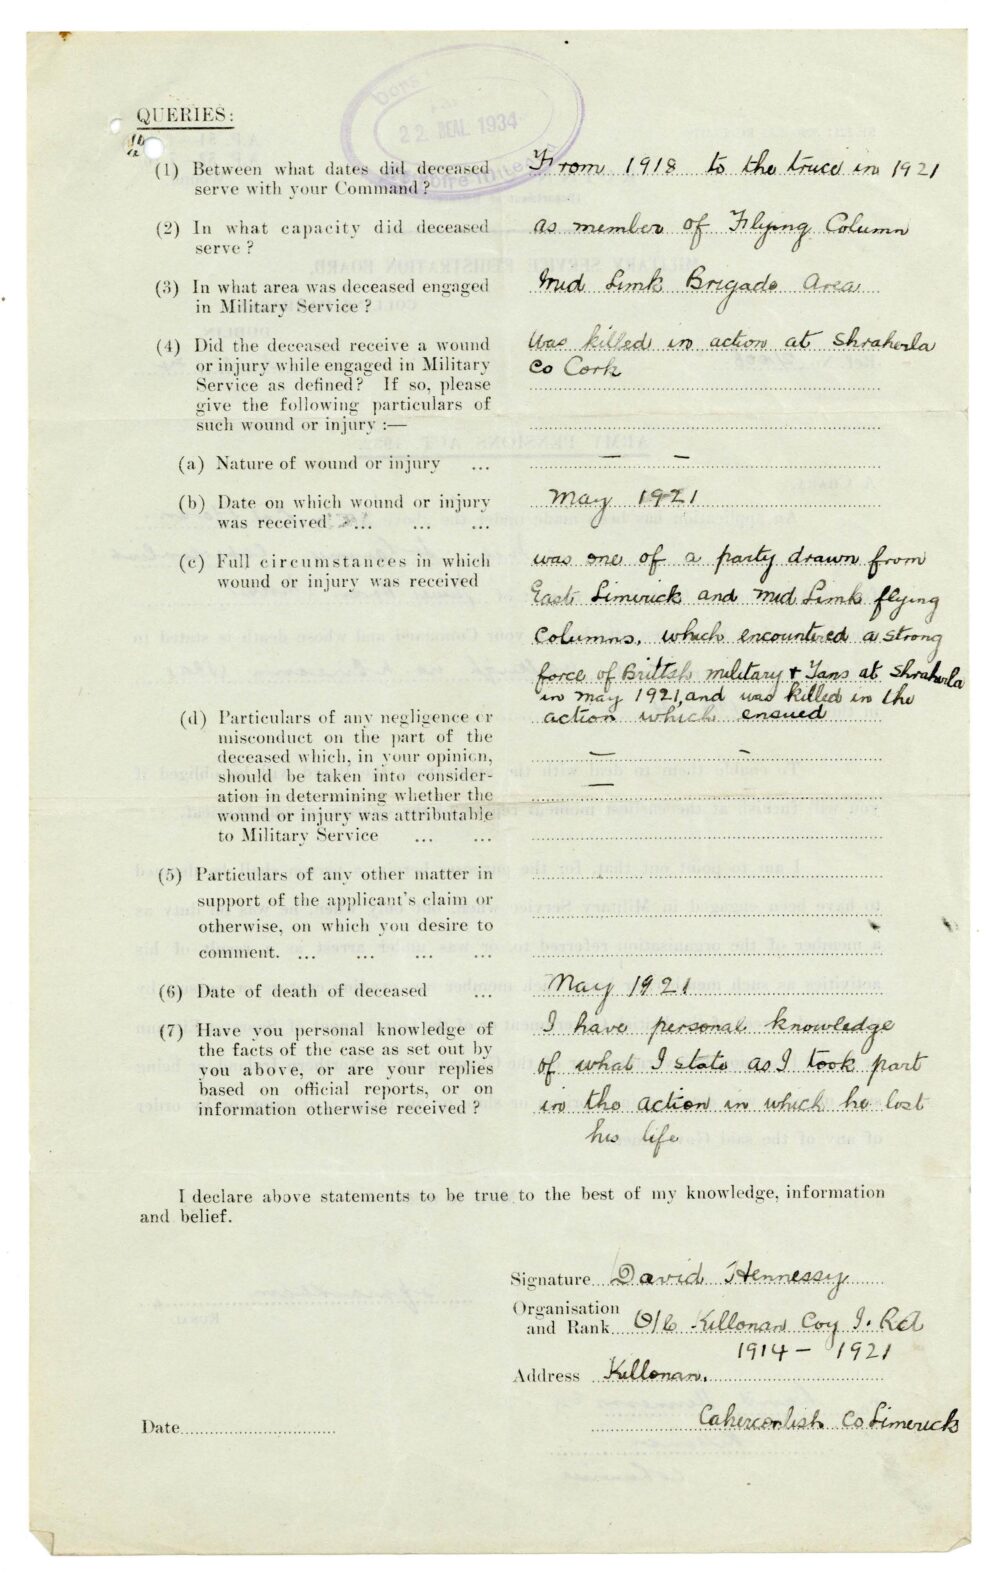 QUERIES:
22 MEAL 1934
(1) Between what dates did deceased
serve with your Command?
From 1918 to the truce in 1921
(2) In what capacity did deceased
serve?
as member of Flying Column
(3) In what area was deceased engaged
in Military Service?
Mid Limk Brigade Area
(4) Did the deceased receive a wound
or injury while engaged in Military
Service as defined? If so, please
give the following particulars of
such wound or injury :—
Was killed in action at Shraherla
Co Cork
(a) Nature of wound or injury ...
— —
(b) Date on which wound or injury
was received ... ... ...
May 1921
(c) Full circumstances in which
wound or injury was received
was one of a party drawn from
East Limerick and Mid Limk flying
Columns, which encountered a strong
force of Brittsh military + Tans at Shraherla
in may 1921, and was killed in the
action which ensued
(d) Particulars of any negligence or
misconduct on the part of the
deceased which, in your opinion,
should be taken into consider-
ation in determining whether the
wound or injury was attributable
to Military Service ... ...
— —
—
(5) Particulars of any other matter in
support of the applicant's claim or
otherwise, on which you desire to
comment. ... ... ... ...
(6) Date of death of deceased ...
May 1921
(7) Have you personal knowledge of
the facts of the case as set out by
you above, or are your replies
based on official reports, or on
information otherwise received?
I have personal knowledge
of what I state as I took part
in the action in which he lost
his life
I declare above statements to be true to the best of my knowledge, information
and belief.
Signature David Hennessy
Organisation
and Rank O/C Killonan Coy I. R A
1914 - 1921
Address Killonan.
Caherconlish Co Limerick
Date